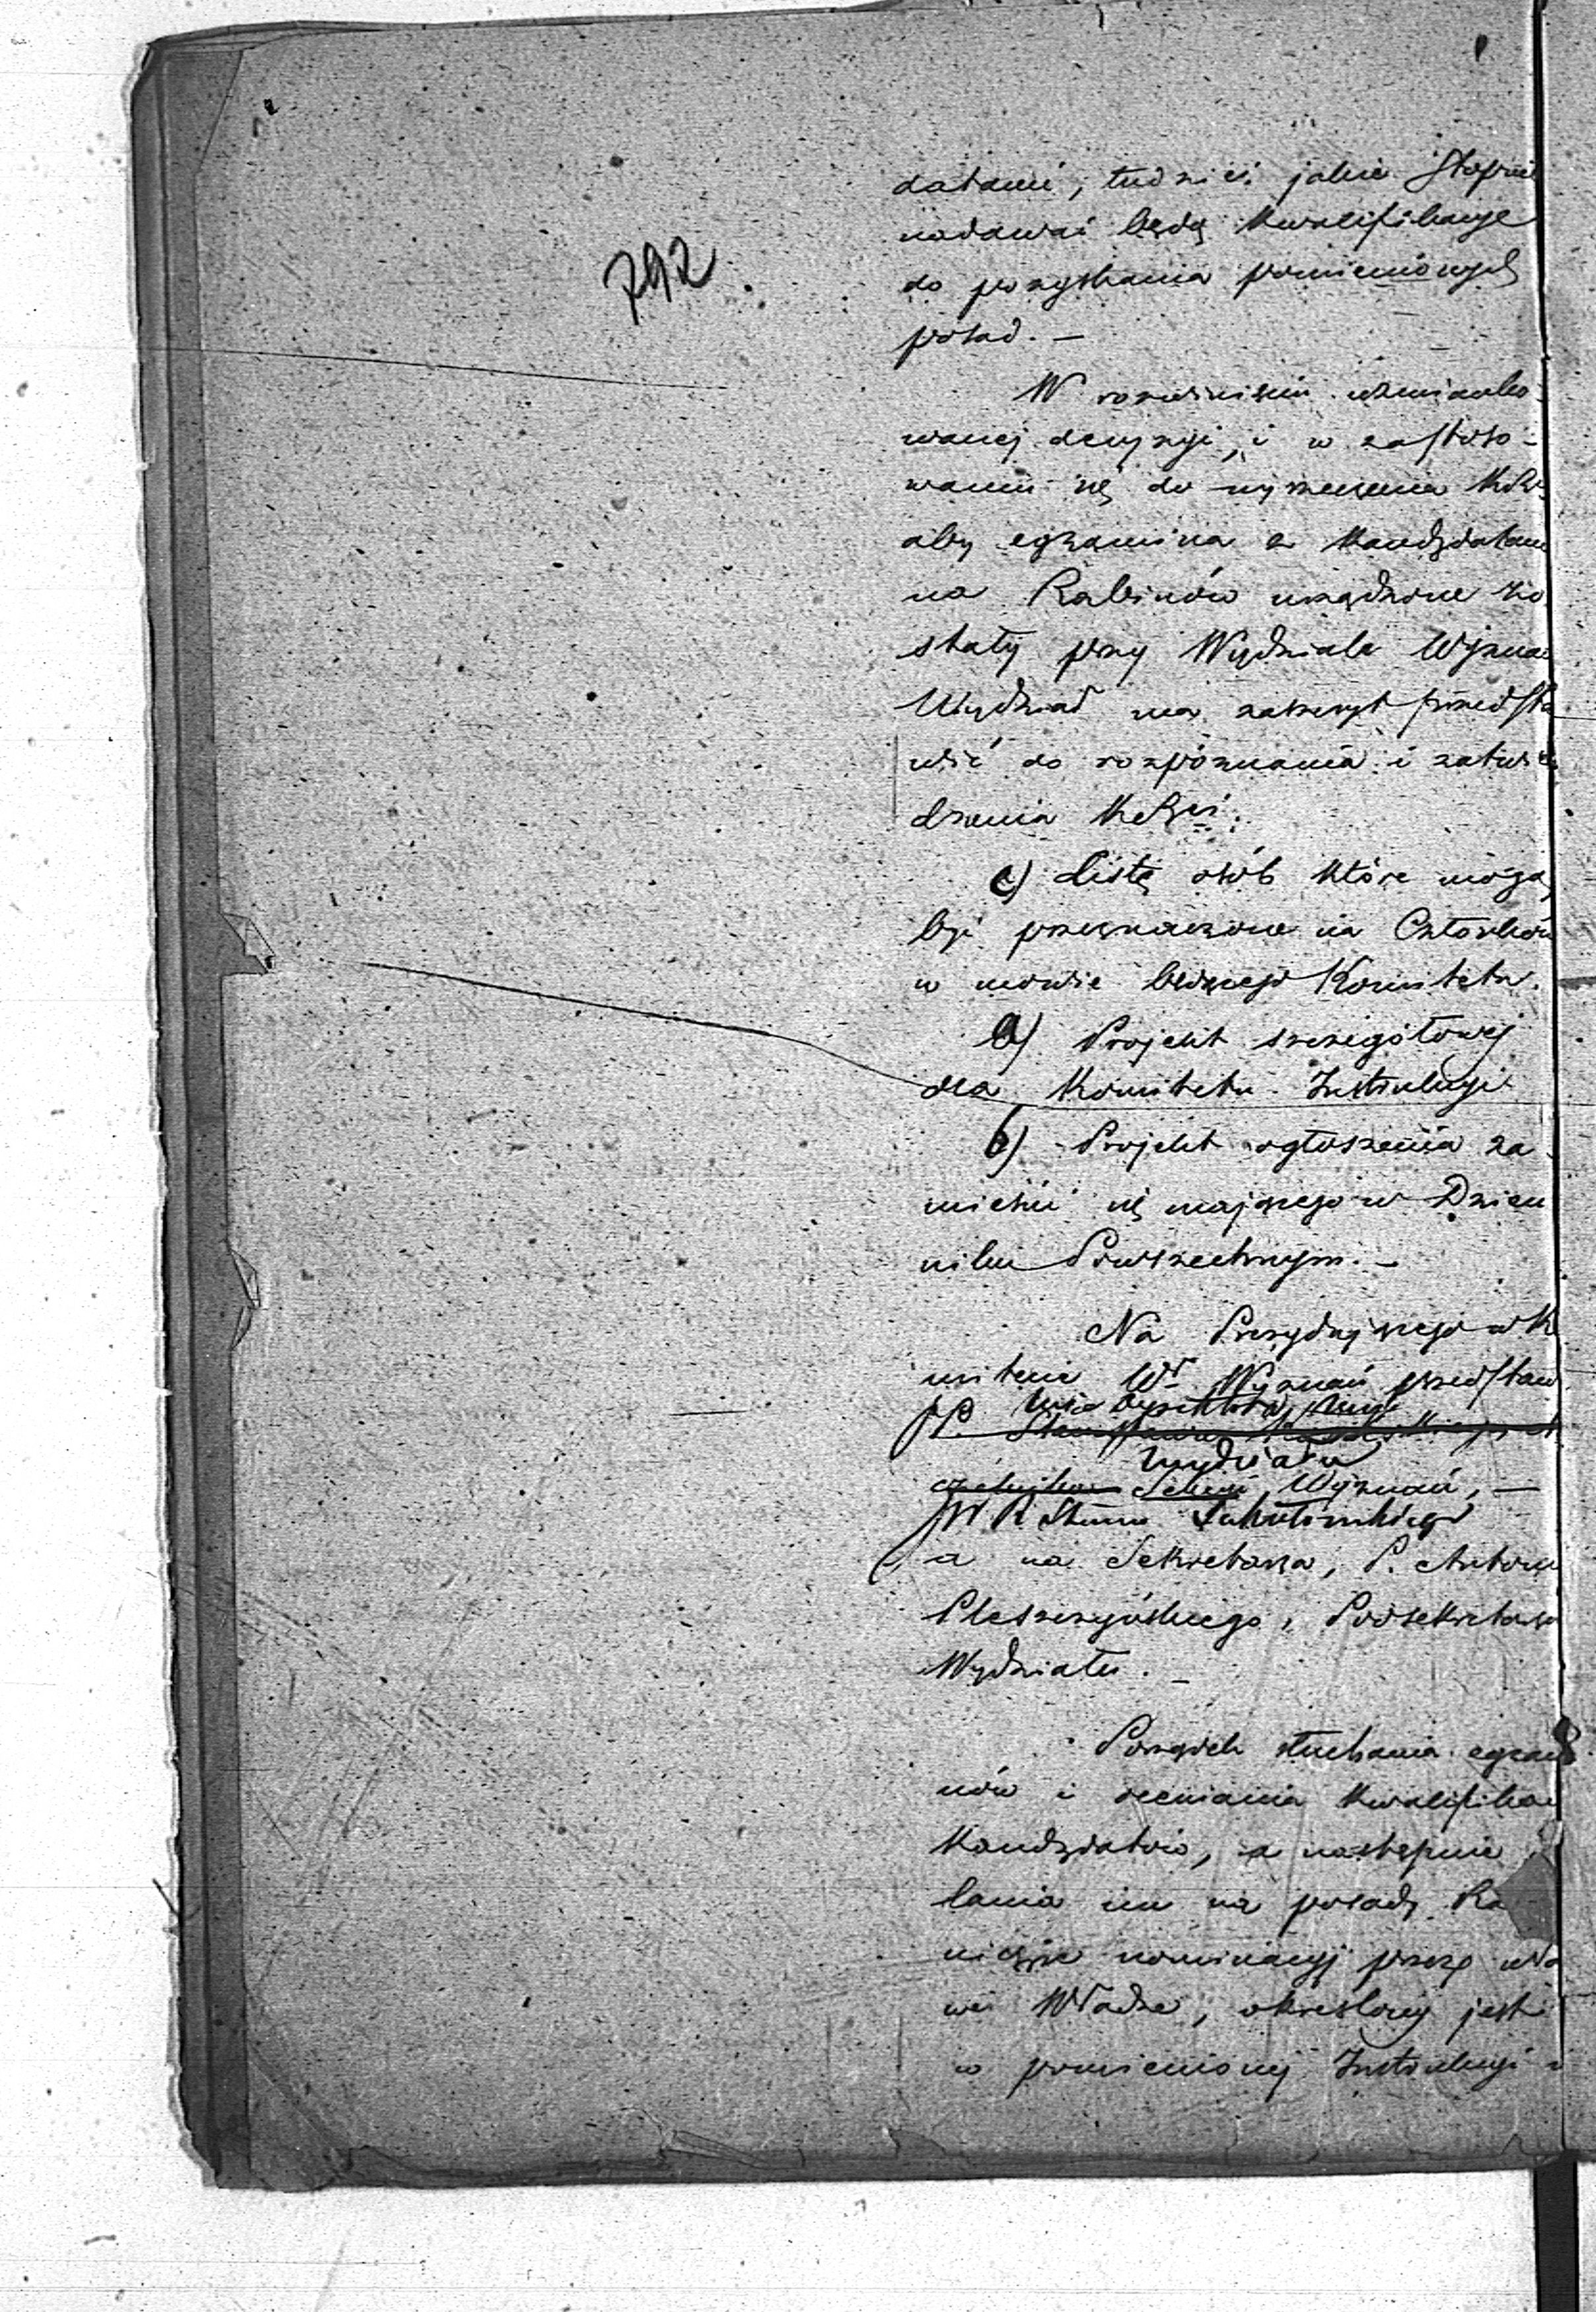 792
datami, tudzież jakie stopnie
nadawać będą kwalifikacye
do pozyskania pomienionych
posad. –
W rozwinięciu wzmianko-
wanej decyzyi, i w zastoso-
waniu się do wyrzeczenia
aby egzamina z kandydatami
na Rabinów urządzone zo
stały przy Wydziale Wyznań
Wydział ma zaszczyt przedsta
wić do rozpoznania i zatwier
dzenia
a) Listę osób które mogą
być przeznaczone na Członków
w mowie będącego Komitetu.
Projekt szczegółowej
dla Komitetu Instrukcyi
b) Projekt ogłoszenia za
mieścić się mającego w Dzien
niku Powszechnym. –
Na Prezydującego w K
mitecie Wł Wyznań przedstaw
JP. Vice Dyrektora
Wydziału
Sekcyi Wyznań, –
a na Sekretarza, P. Antoni
Pleszczyńskiego, Podsekretarza
Wydziału. –
Porządek słuchania egzam
nów i oceniania kwalifika
kandydatów, a następnie
lania im na posady Ra
nicze nominacyj przez wła
we Władze, określony jest
w pomienionej Instrukcyi